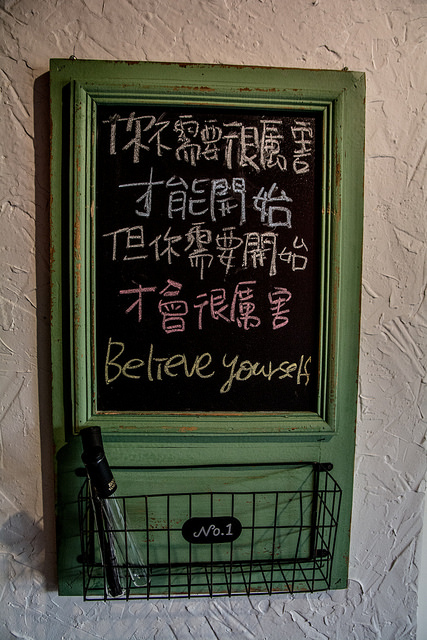 你不需要很厲害
才能開始
但你需要開始
才會很厲害
Believe yourself
No.1